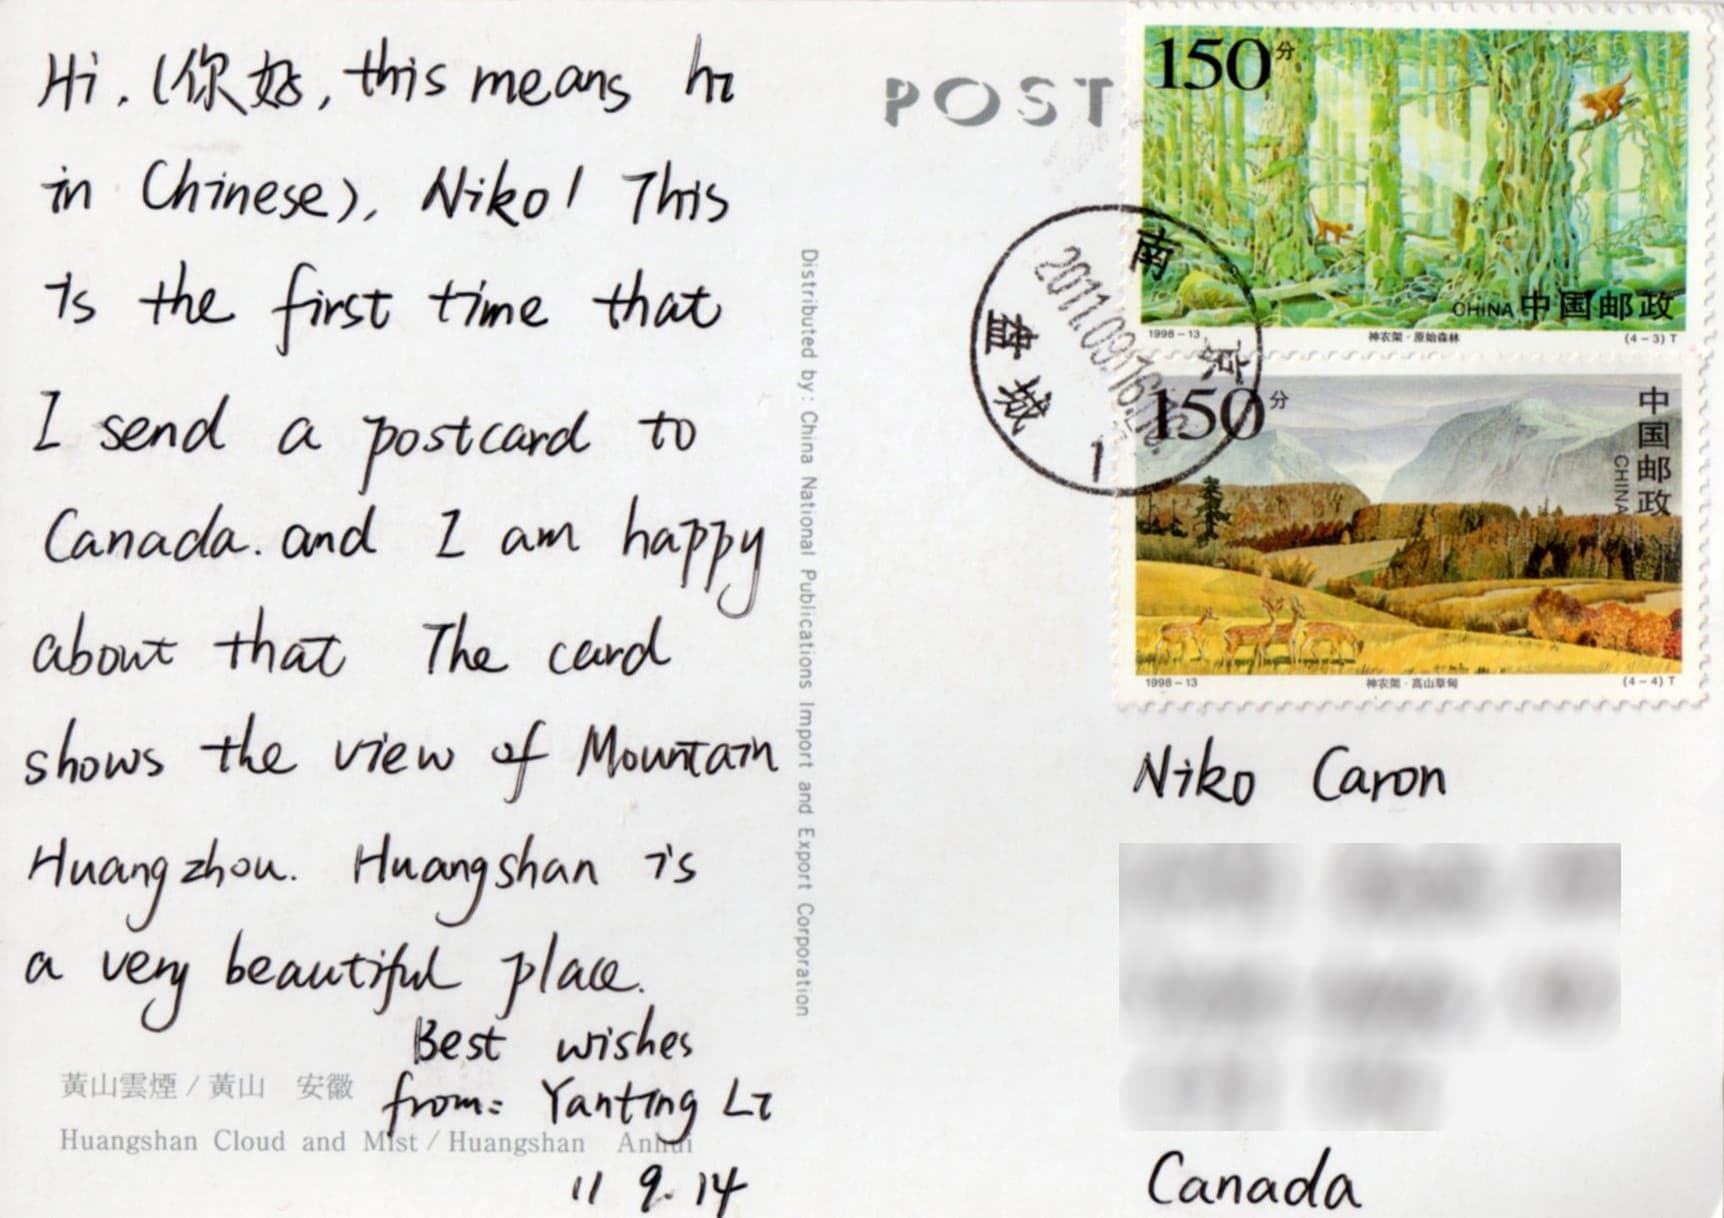 Hi. (你好, this means hi
in Chinese), Niko! This
is the first time that
I send a postcard to
Canada. and I am happy
about that The card
shows the view of Mountain
Huangzhou. Huangshan is
a very beautiful place.
Best wishes
from: Yanting Li
11 9. 14
黃山雲煙 / 黃山 安徽
Huangshan Cloud and Mist / Huangshan Anhui
Distributed by: China National Publications Import and Export Corporation
POST
150分
CHINA 中国邮政
1998-13
神农架·原始森林
(4-3)T
150分
中国邮政
CHINA
1998-13
神农架·高山草甸
(4-4)T
南
2011.09.16
城
1
Niko Caron
Canada